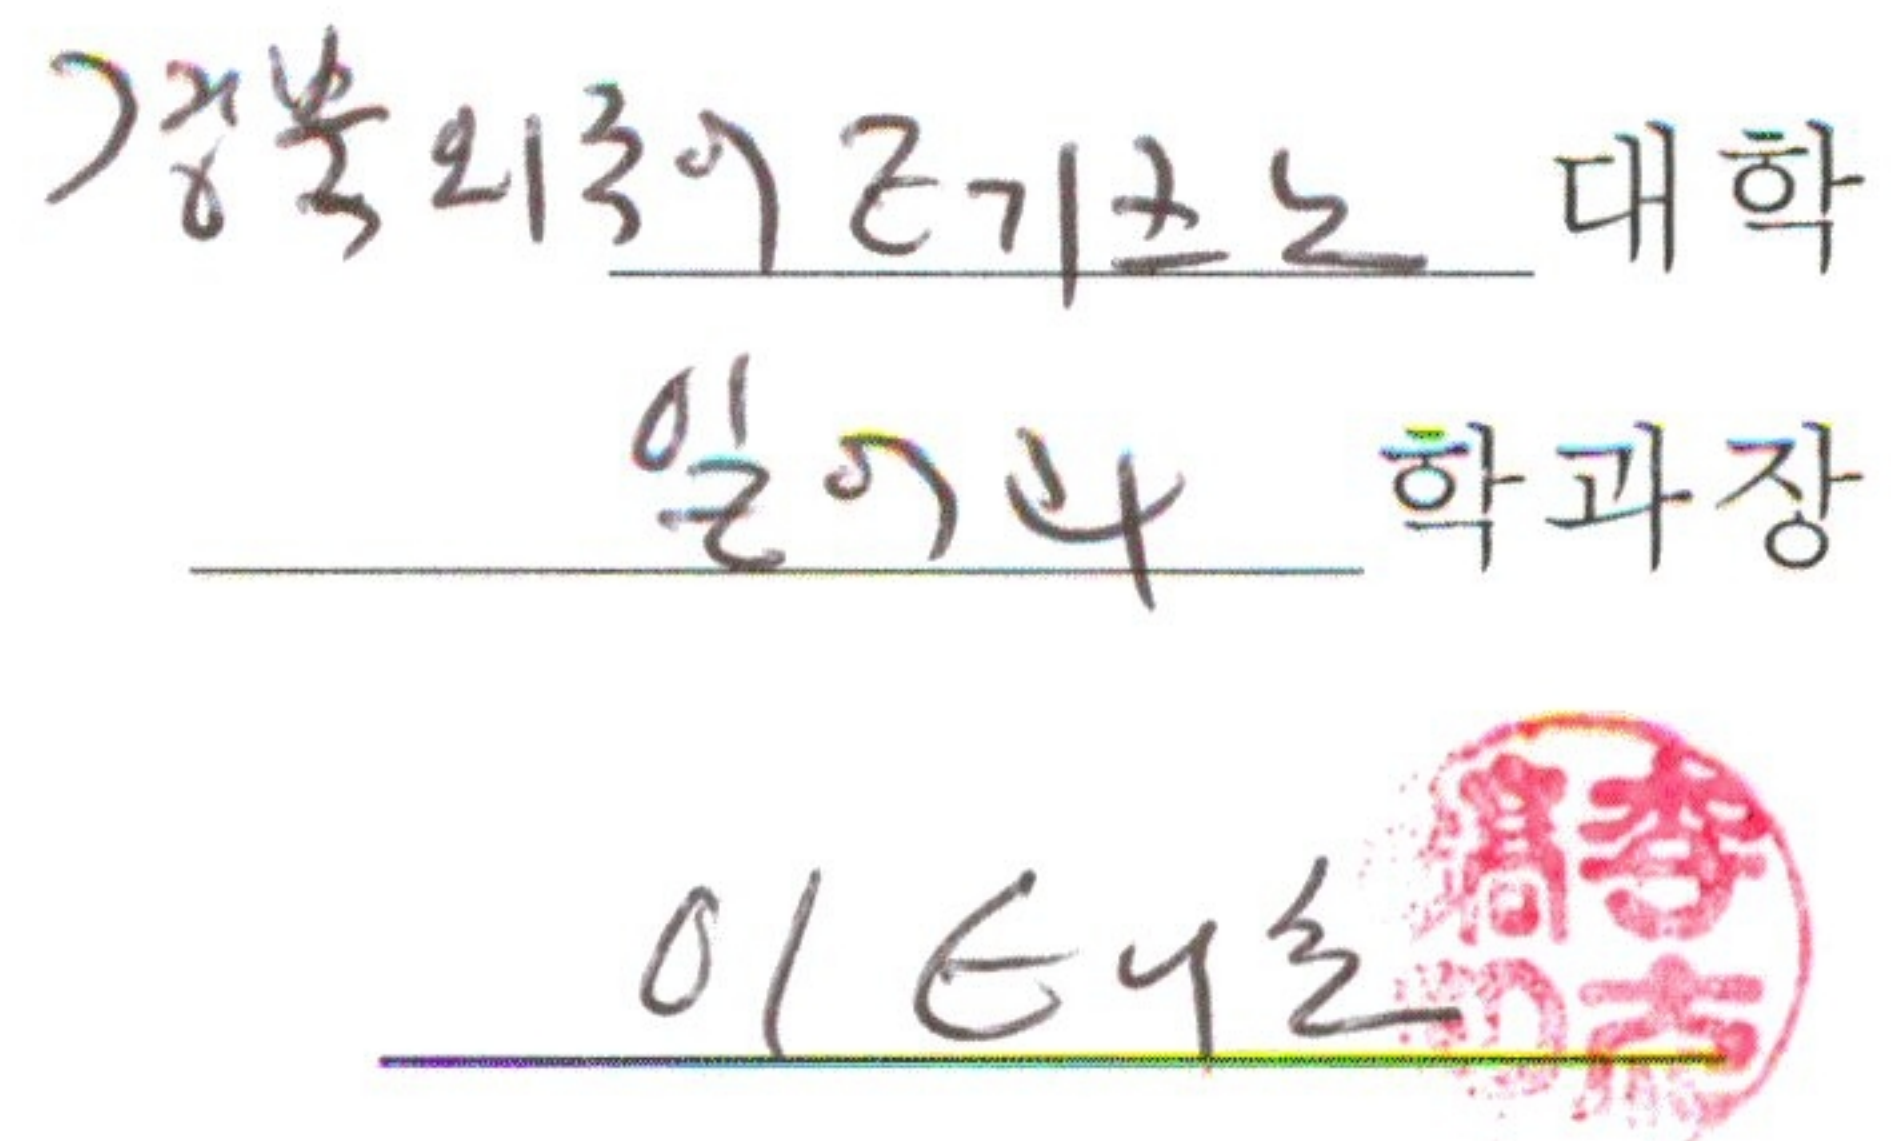 경북외국어테크노 대학
일어과 학과장
이
李